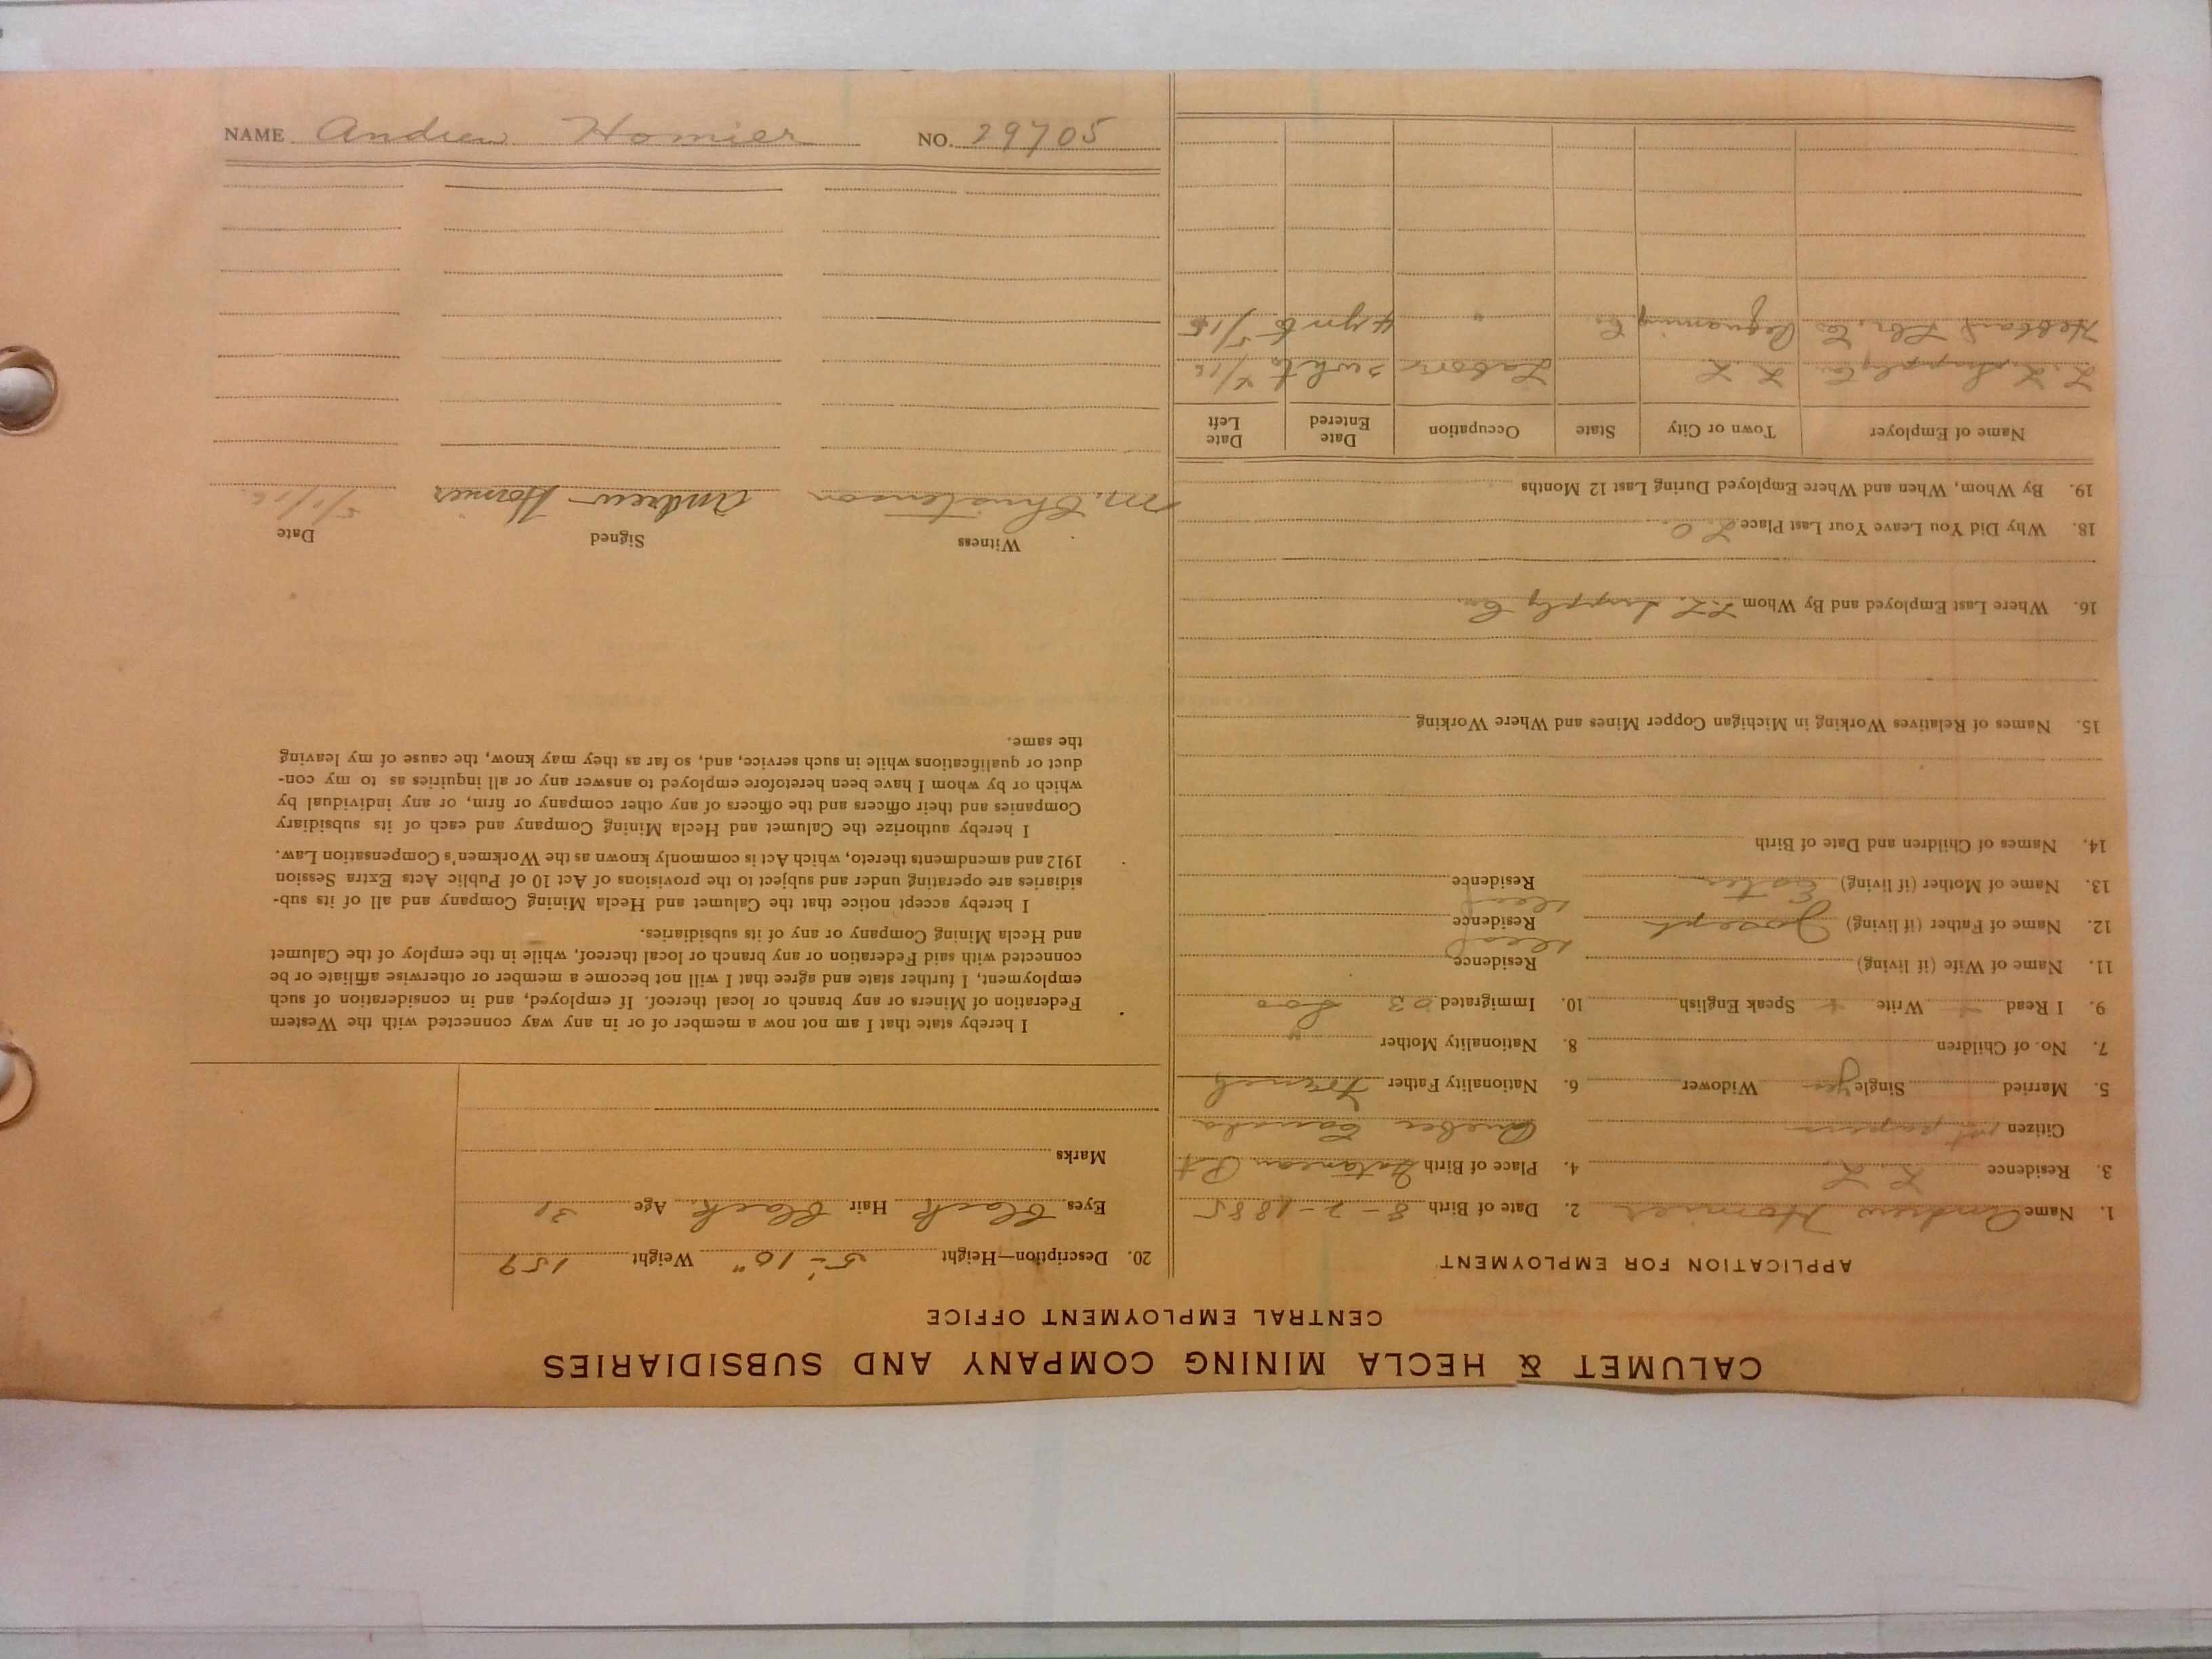 NAME Andrew Homier NO. 29705
CALUMET & HECLA MINING COMPANY AND SUBSIDIARIES
CENTRAL EMPLOYMENT OFFICE
APPLICATION FOR EMPLOYMENT
1. Name Andrew Homier 2. Date of Birth 8-2-1885
3. Residence L. L. 4. Place of Birth
Citizen 1st papers Quebec Canada
5. Married Single yes Widower 6. Nationality Father French
7. No. of Children 8. Nationality Mother "
9. I Read Write Speak English 10. Immigrated 03 Soo
11. Name of Wife (if living) Residence
12. Name of Father (if living) Joseph Residence dead
13. Name of Mother (if living) Residence dead
14. Names of Children and Date of Birth
15. Names of Relatives Working in Michigan Copper Mines and Where Working
16. Where Last Employed and By Whom L. L. Supply Co.
18. Why Did You Leave Your Last Place
19. By Whom, When and Where Employed During Last 12 Months
Name of Employer Town or City State Occupation Date Entered Date Left
L. L. Supply Co L. L. Labor
Hebbard Lbr. Co " 5/15
20. Description—Height 5'-10" Weight 159
Eyes black Hair black Age 31
Marks
I hereby state that I am not now a member of or in any way connected with the Western
Federation of Miners or any branch or local thereof. If employed, and in consideration of such
employment, I further state and agree that I will not become a member or otherwise affiliate or be
connected with said Federation or any branch or local thereof, while in the employ of the Calumet
and Hecla Mining Company or any of its subsidiaries.
I hereby accept notice that the Calumet and Hecla Mining Company and all of its sub-
sidiaries are operating under and subject to the provisions of Act 10 of Public Acts Extra Session
1912 and amendments thereto, which Act is commonly known as the Workmen's Compensation Law.
I hereby authorize the Calumet and Hecla Mining Company and each of its subsidiary
Companies and their officers and the officers of any other company or firm, or any individual by
which or by whom I have been heretofore employed to answer any or all inquiries as to my con-
duct or qualifications while in such service, and, so far as they may know, the cause of my leaving
the same.
Witness Signed Date
M. Christenson Andrew Homier 5/1/16